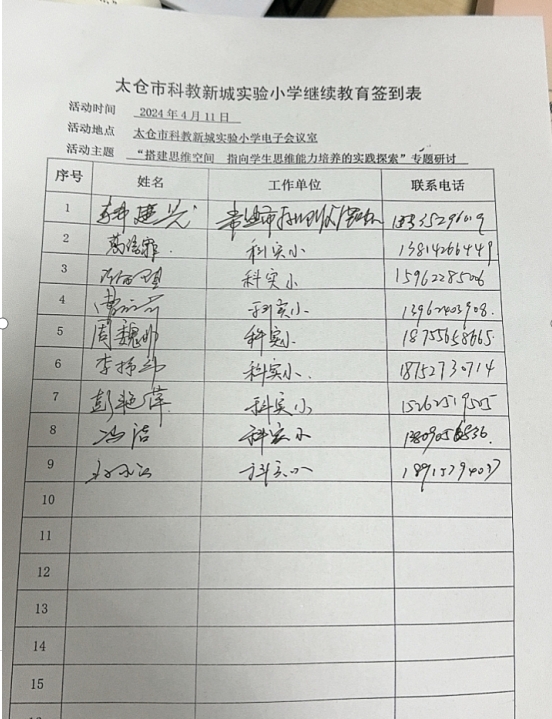 太仓市科教新城实验小学继续教育签到表
活动时间 2024年4月11日
活动地点 太仓市科教新城实验小学电子会议室
活动主题 “搭建思维空间 指向学生思维能力培养的实践探索”专题研讨
序号 姓名 工作单位 联系电话
1
2 科实小 13814266449
3 科实小 15962285006
4 科实小 13962403908
5 周魏 科实小 18755658665
6 李扬 科实小 18752730714
7 彭艳萍 科实小 15262519505
8 冯洁 科实小
9 科实小 18915794037
10
11
12
13
14
15